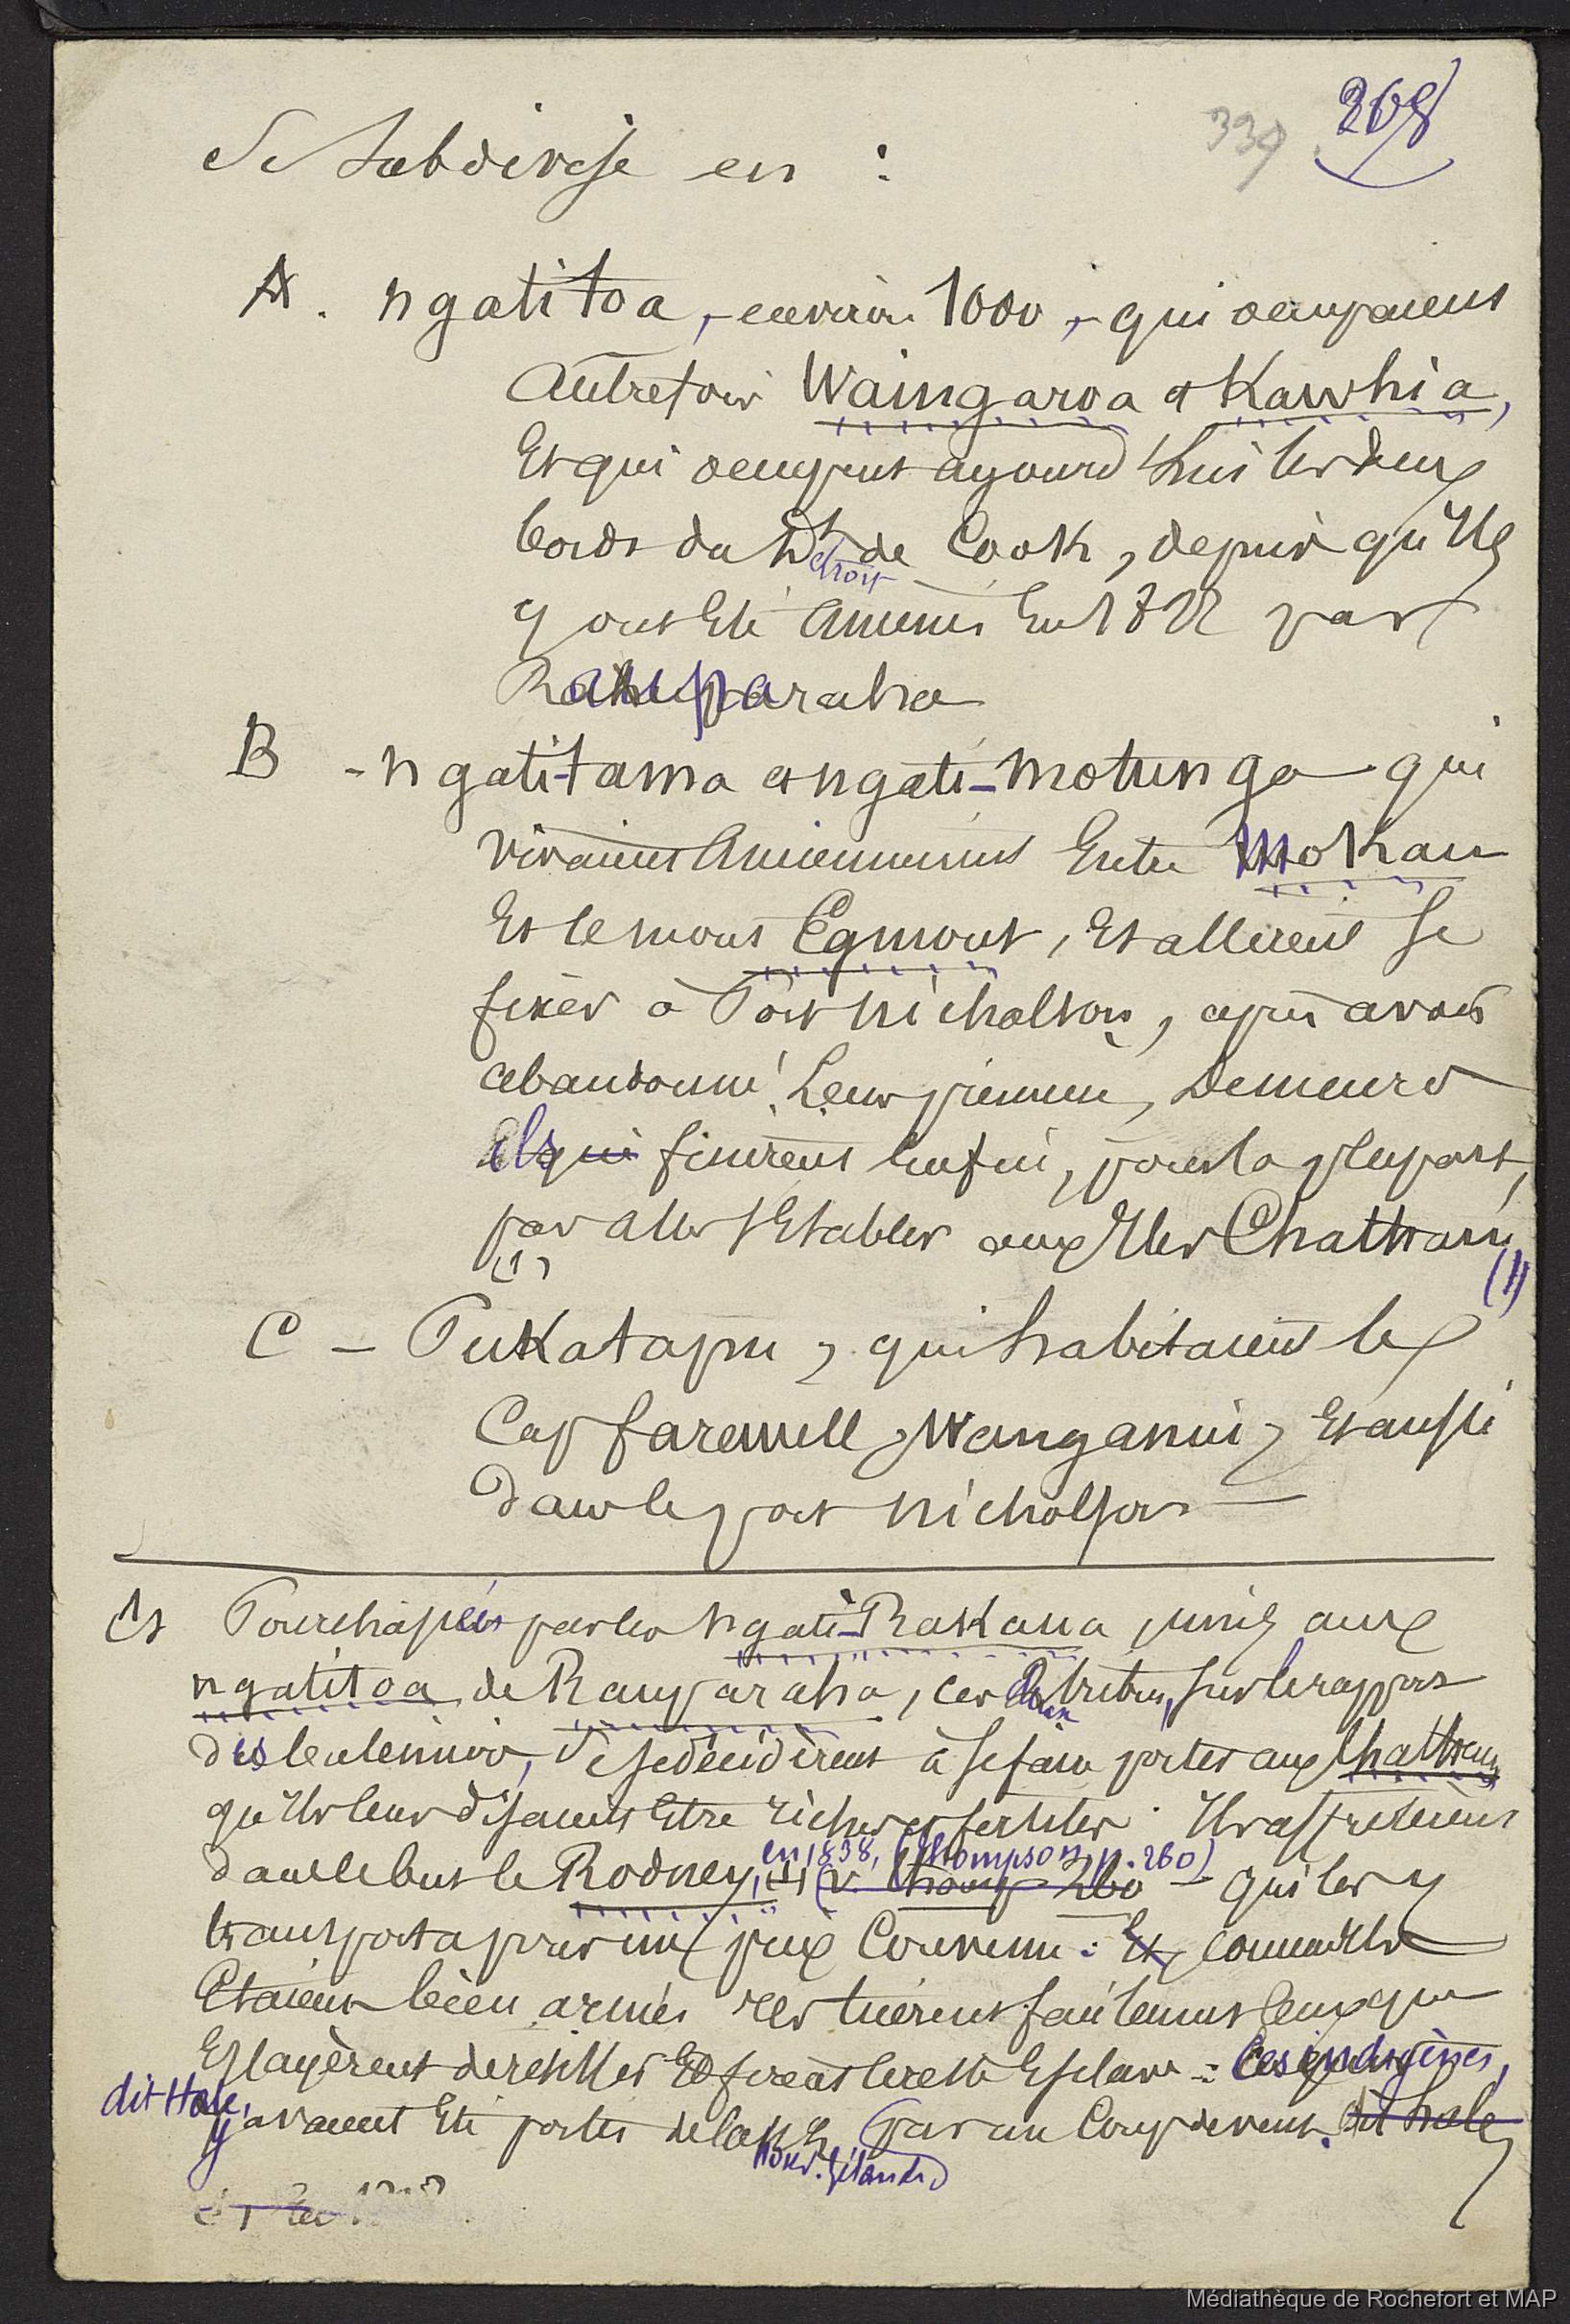 339 268
Se subdivise en :
A. ngatitoa, - environ 1000, - qui occupaient
autrefois Waingaroa et Kawhia,
et qui occupent aujourd'hui les deux
bords du Dt de Cook, depuis qu'ils
détroit
y ont été amenés en 1822 par
Rauparaha
B - ngati-tama et ngati-motunga qui
vivaient anciennement entre Mokau
et le mont Egmont, et allèrent se
fixer à Port Nicholson, après avoir
abandonné leur première demeure
Ils qui finirent enfin, pour la plupart,
par aller s'établir aux Iles Chattam
(1) (1)
C - Pukatapu, qui habitaient le
Cap farewell, Wanganui, et aussi
dans le port nicholson
(1) Pourchassées par les ngati-Rakaua, unis aux
ngatitoa de Rauparaha, ces deux tribus, sur le rapport
des baleiniers, se décidèrent à se faire porter aux Chattam
qu'ils leur disaient être riches et fertiles. Ils affrétèrent
en 1838, (Thompson, p. 260)
dans le but le Rodney, (v. Thomp 260 - qui les y
transporta pour un prix convenu : Et comme ils
étaient bien armés ils tuèrent facilement ceux qui
essayèrent de résister et firent le reste esclave : Ces indigènes,
dit Hale, y avaient été portés de la N. Z. par un coup de vent. dit hale
Nouv. Zélande